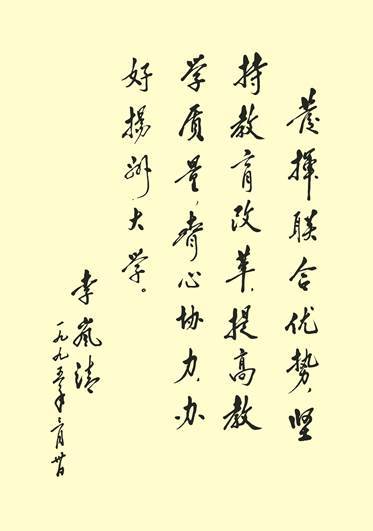 發揮联合优势,坚
持教育改革,提高教
学质量,齐心协力,办
好揚州大学。
李岚清
一九九五年 月廿日